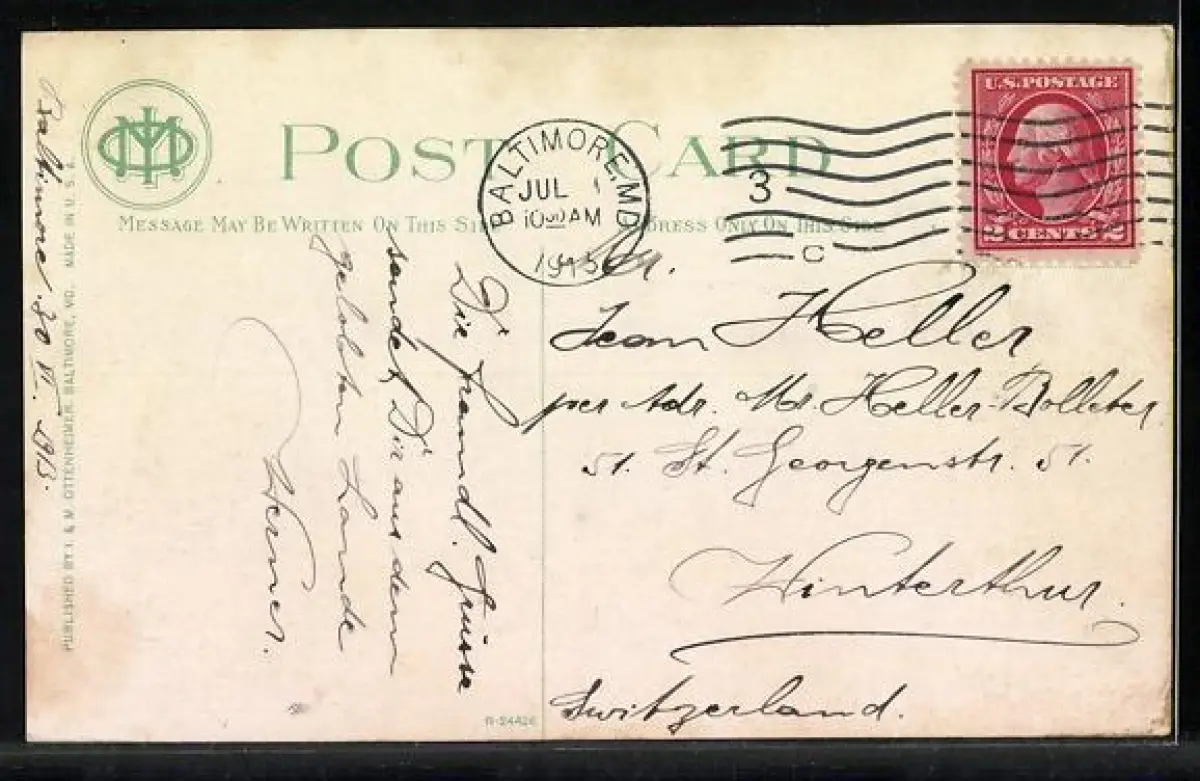 POST CARD
MESSAGE MAY BE WRITTEN ON THIS SIDE
ADDRESS ONLY ON THIS SIDE
U.S. POSTAGE
2 CENTS 2
BALTIMORE, MD
JUL 1
10 AM
3
C
Baltimore 30 VI. 1913.
PUBLISHED BY I. & M. OTTENHEIMER, BALTIMORE, MD. MADE IN U. S. A.
Die freundl. Grüsse
sendet Dir aus dem
gelobten Lande
Werner.
Jean Heller
per Adr. Mr. Heller-Bolleter
51. St. Georgenstr. 51.
Winterthur.
Switzerland.